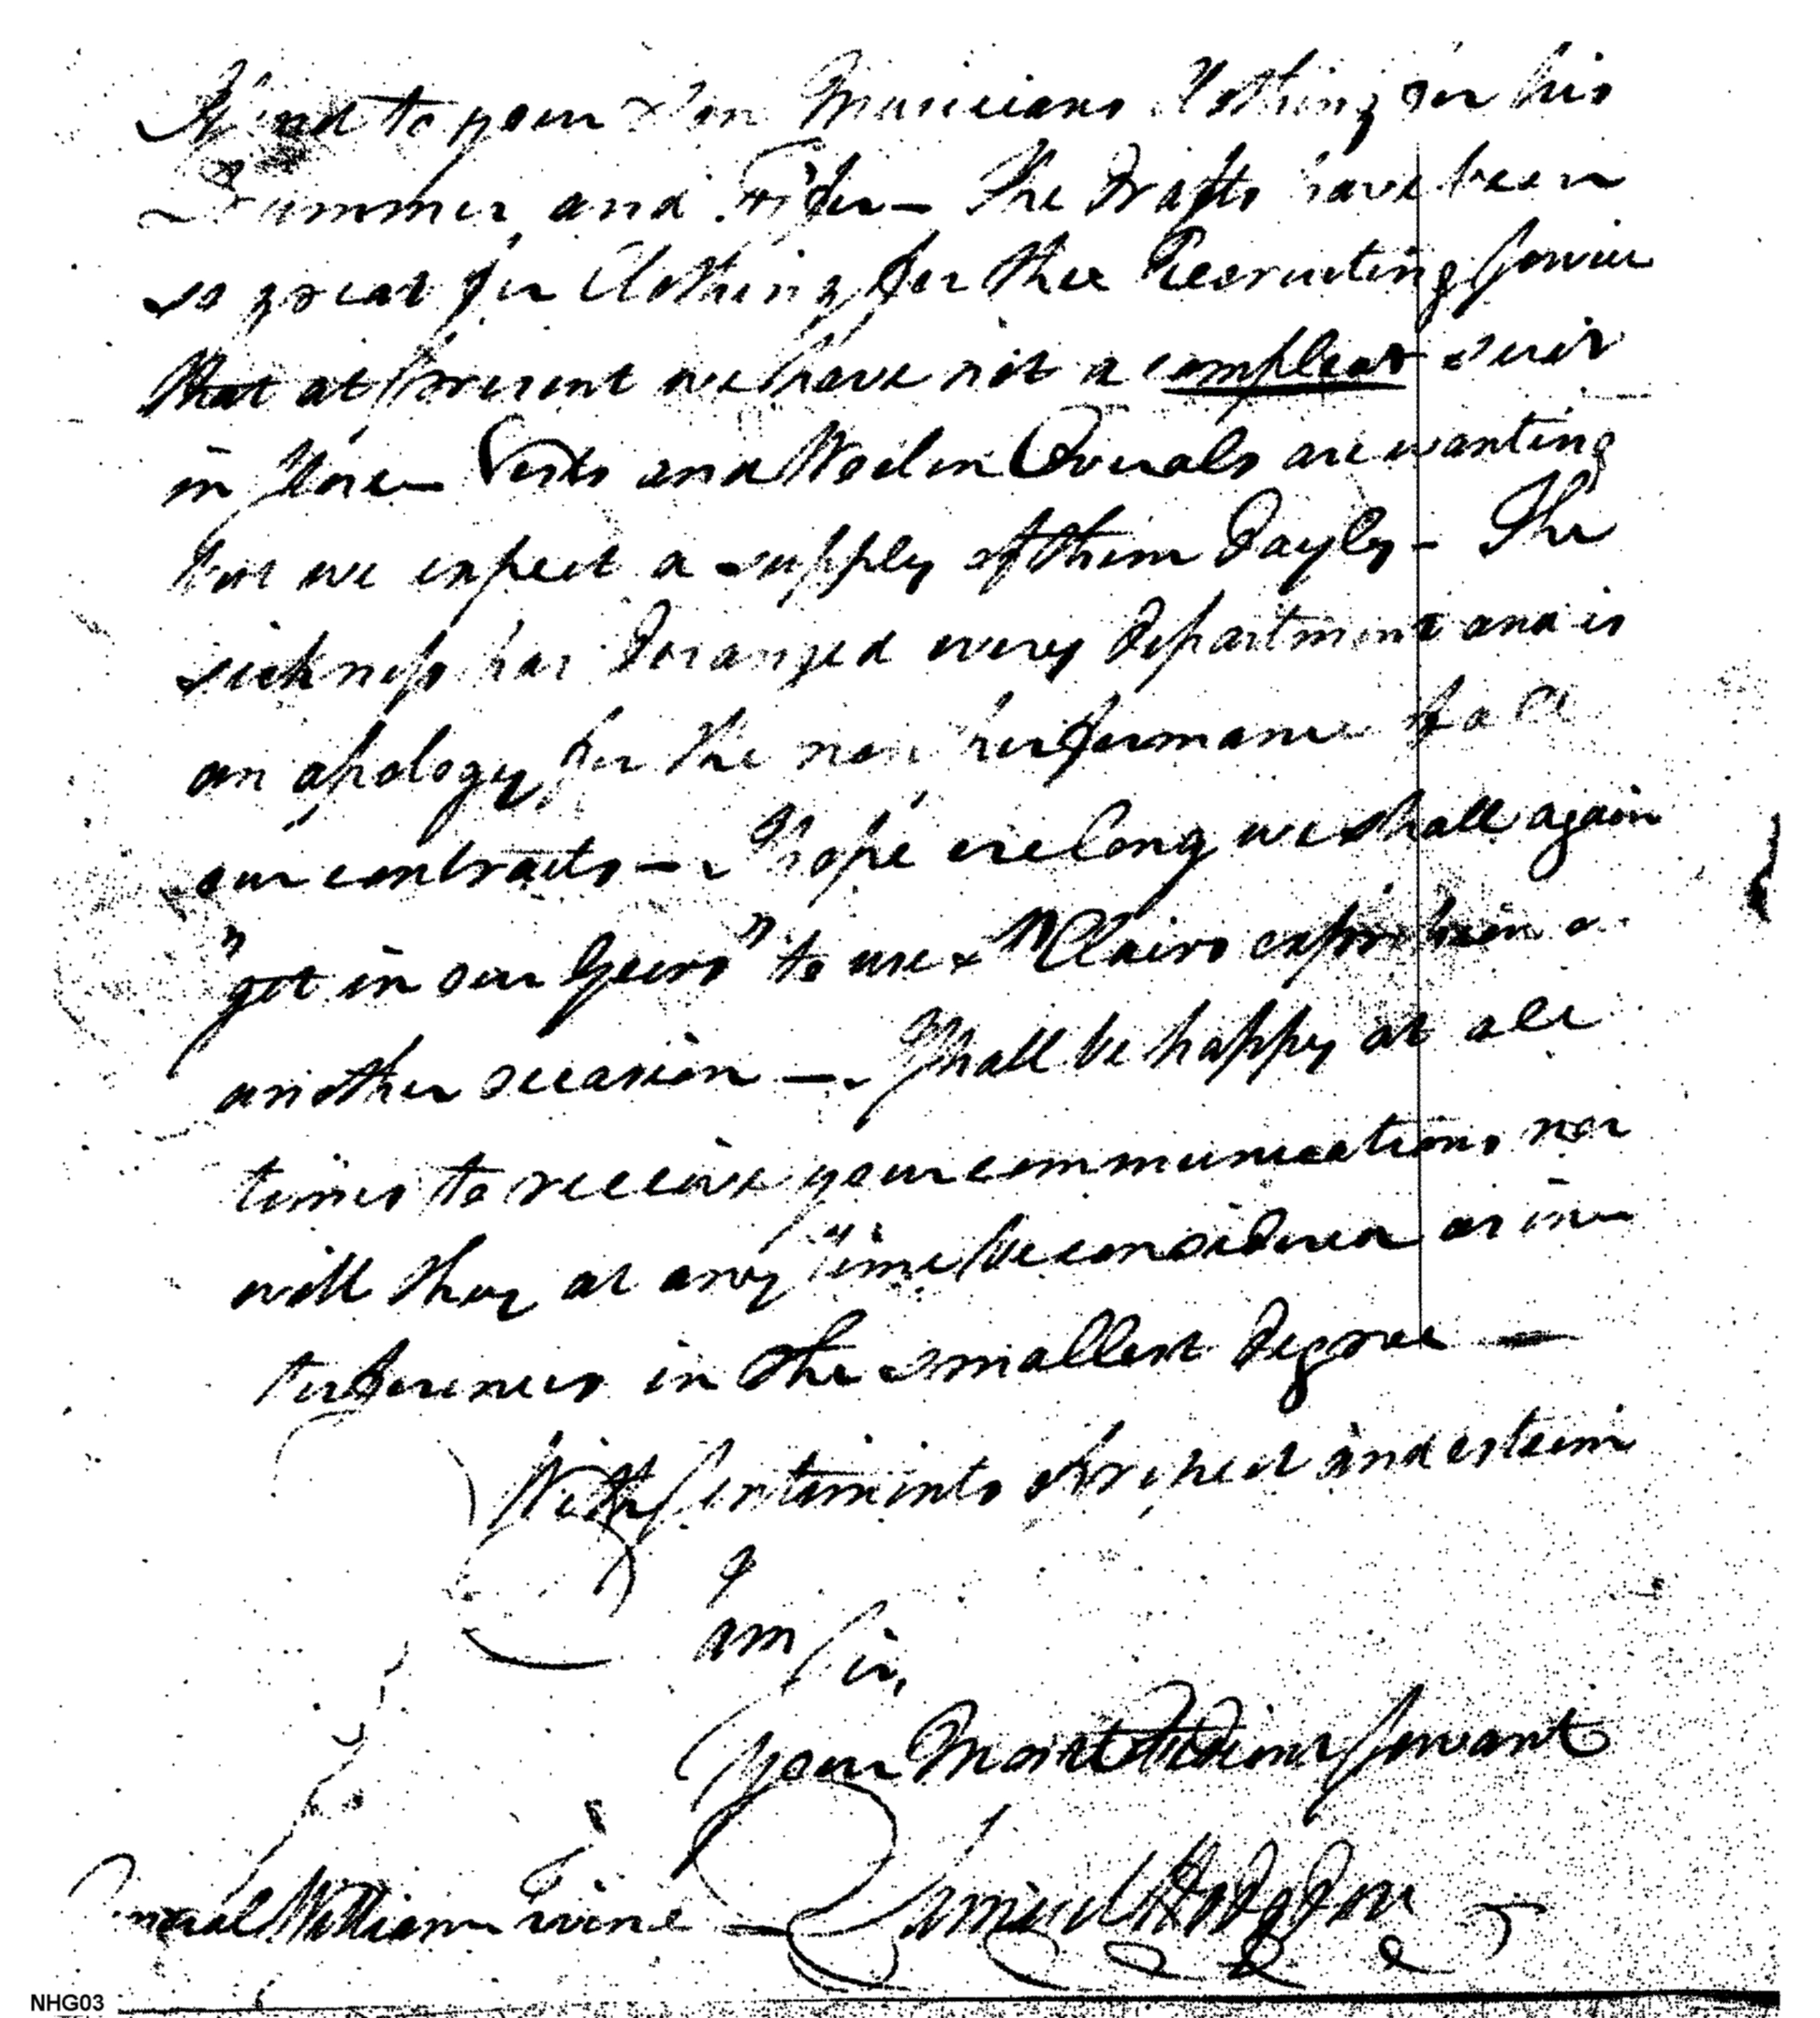 Send to your Son Musicians Clothing for his
Drummer and Fifer — The Drafts have been
so great for Clothing for the Recruiting Service
that at present we have not a compleat suit
in Store — Vests and Woolen Overals are wanting
but we expect a supply of them Dayly — The
sickness has Deranged every Department and is
an apology for the non performance of all
our contracts — I hope ere long we shall again
"get in our Geers" to use Clairs expression
another occasion — I shall be happy at all
times to receive your communications nor
will they at any time be considered as in
terferences in the smallest Degree —
With Sentiments of respect and esteem
I
am Sir,
Your Most Obedient Servant
Samuel Hodgdon
General William Irvine —
NHG03